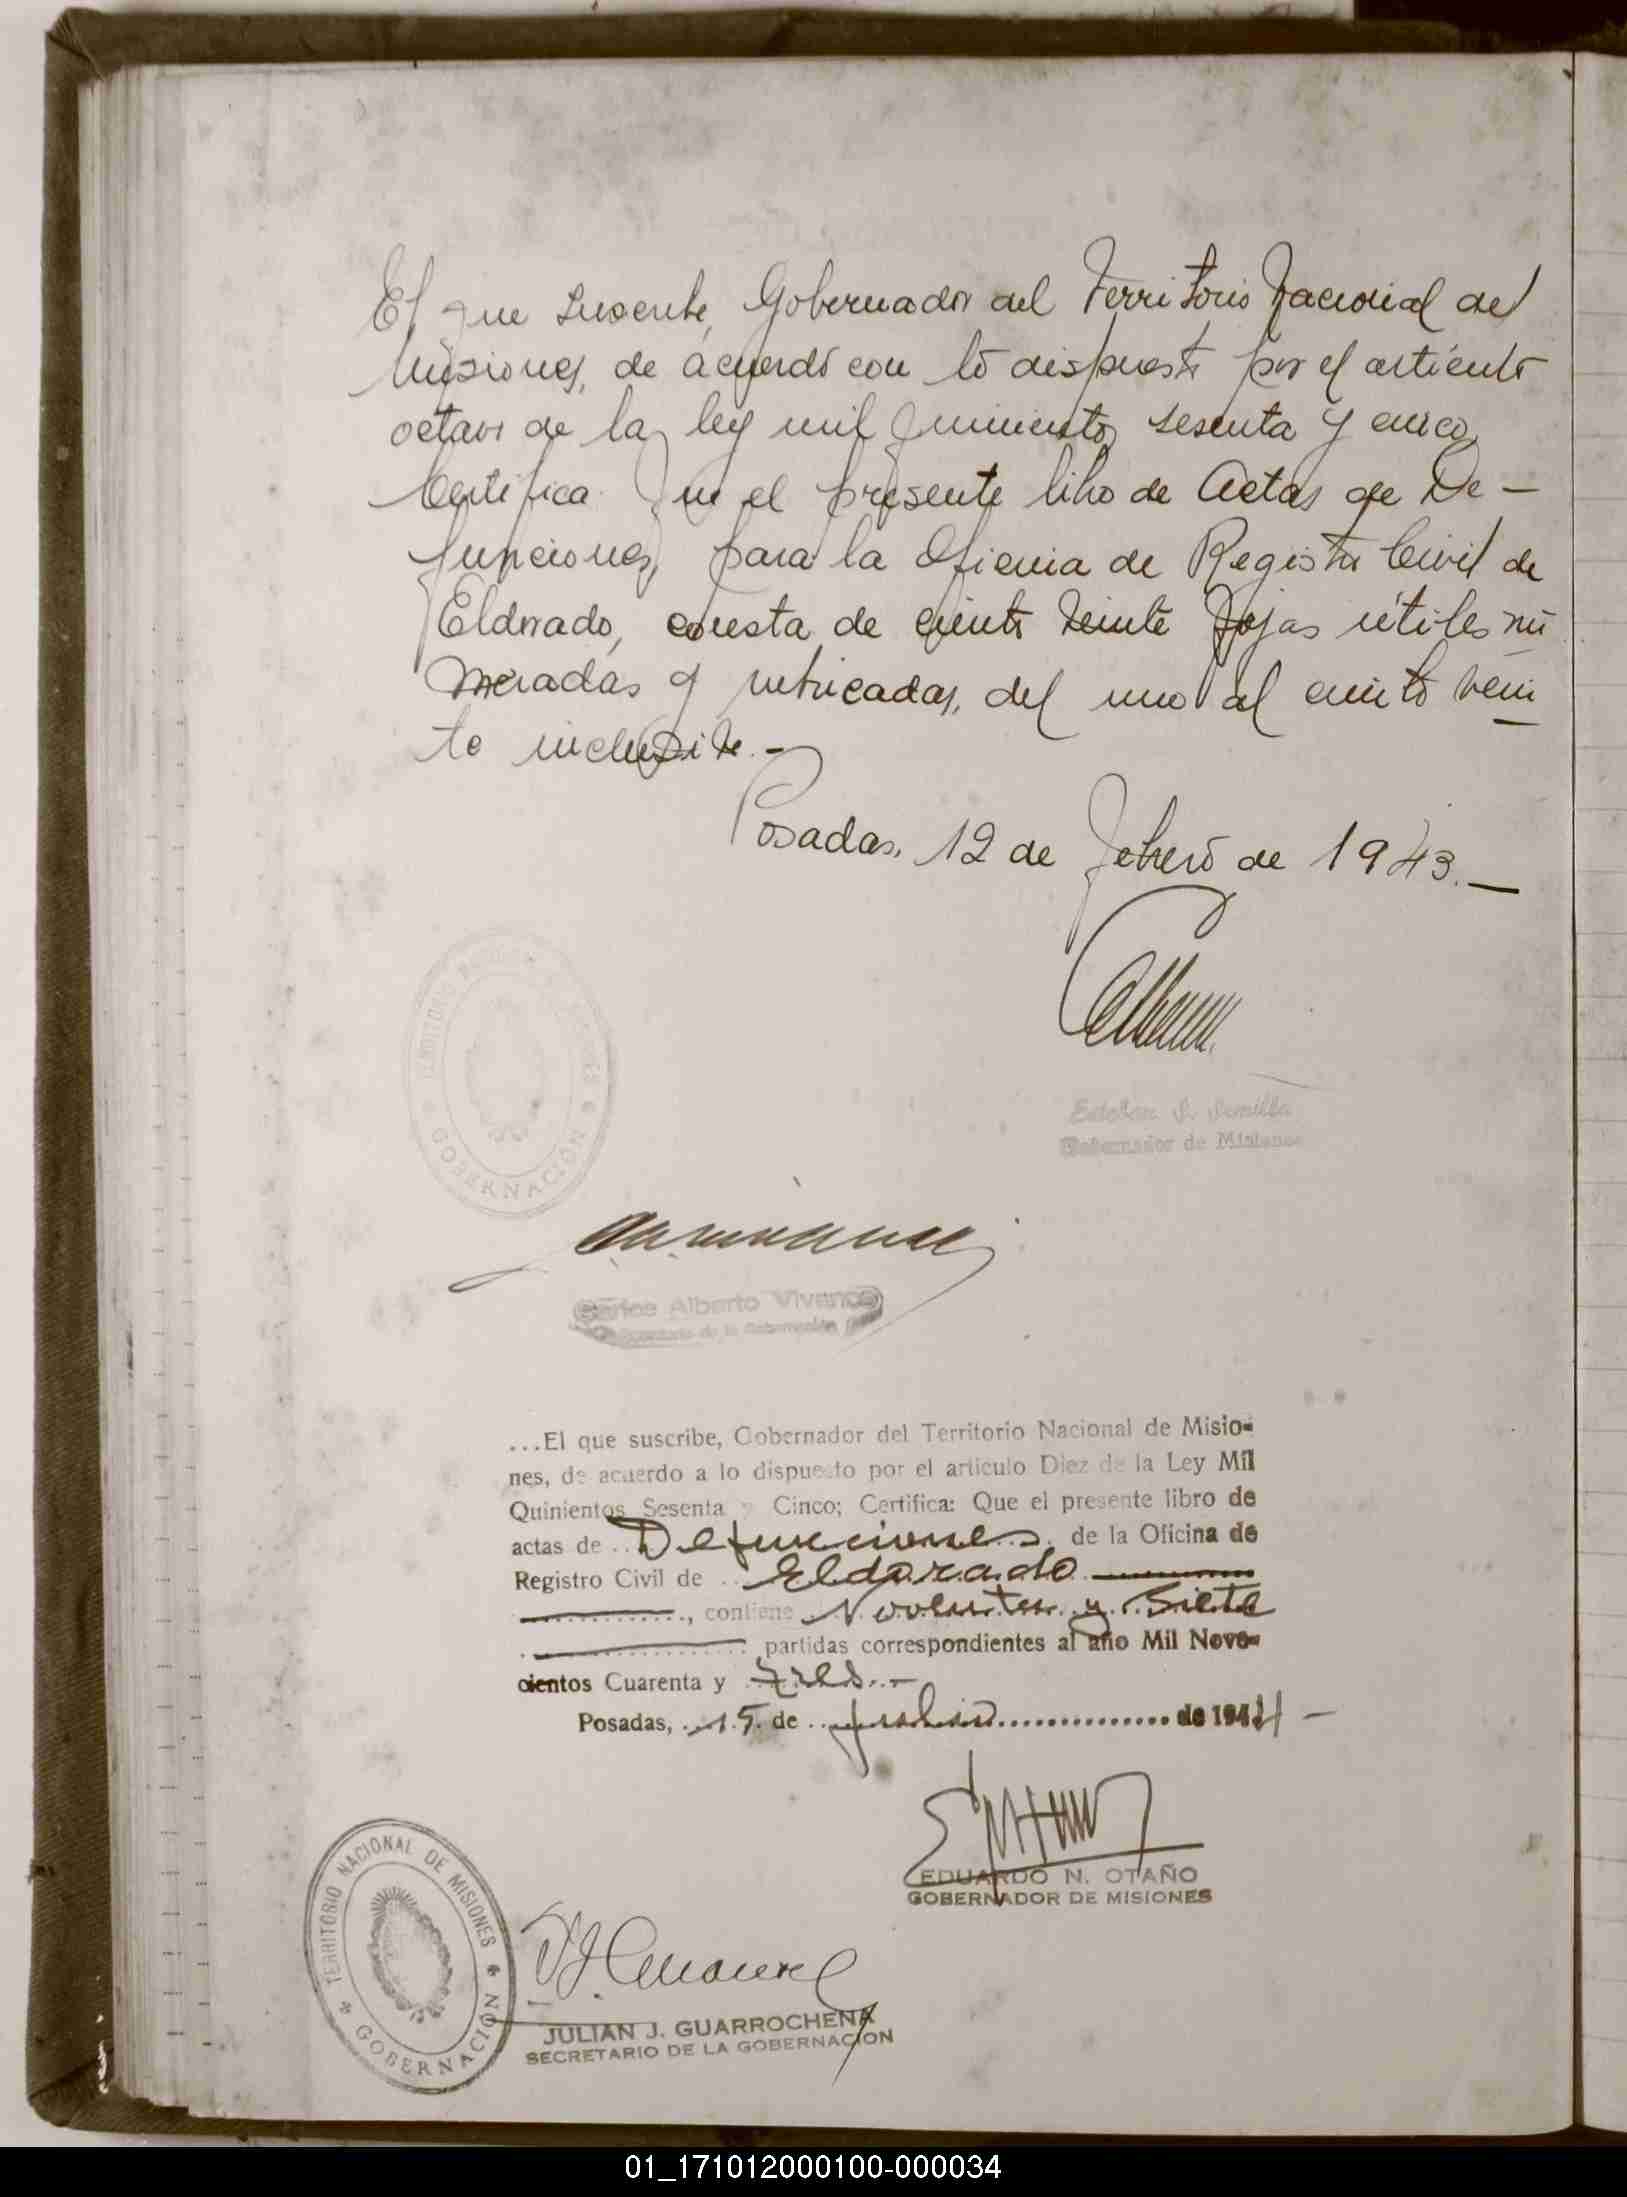 El que suscribe, Gobernador del Territorio Nacional de
Misiones, de acuerdo con lo dispuesto por el artículo
octavo de la ley mil quinientos sesenta y cinco,
Certifica: Que el presente libro de Actas de De-
funciones, para la Oficina de Registro Civil de
Eldorado, consta de ciento veinte fojas útiles nu
meradas y rubricadas, del uno al ciento vein
te inclusive.-
Posadas, 12 de febrero de 1943.-
TERRITORIO
GOBERNACIÓN
Gobernador de Misiones
Carlos Alberto Vivanco
Secretario de la Gobernación
...El que suscribe, Gobernador del Territorio Nacional de Misio-
nes, de acuerdo a lo dispuesto por el articulo Diez de la Ley Mil
Quinientos Sesenta y Cinco; Certifica: Que el presente libro de
actas de Defunciones de la Oficina de
Registro Civil de Eldorado
, contiene Noventa y Siete
partidas correspondientes al año Mil Nove-
cientos Cuarenta y tres.-
Posadas, 15 de julio de 1944 -
EDUARDO N. OTAÑO
GOBERNADOR DE MISIONES
TERRITORIO NACIONAL DE MISIONES
GOBERNACIÓN
JULIAN J. GUARROCHENA
SECRETARIO DE LA GOBERNACION
01_171012000100-000034